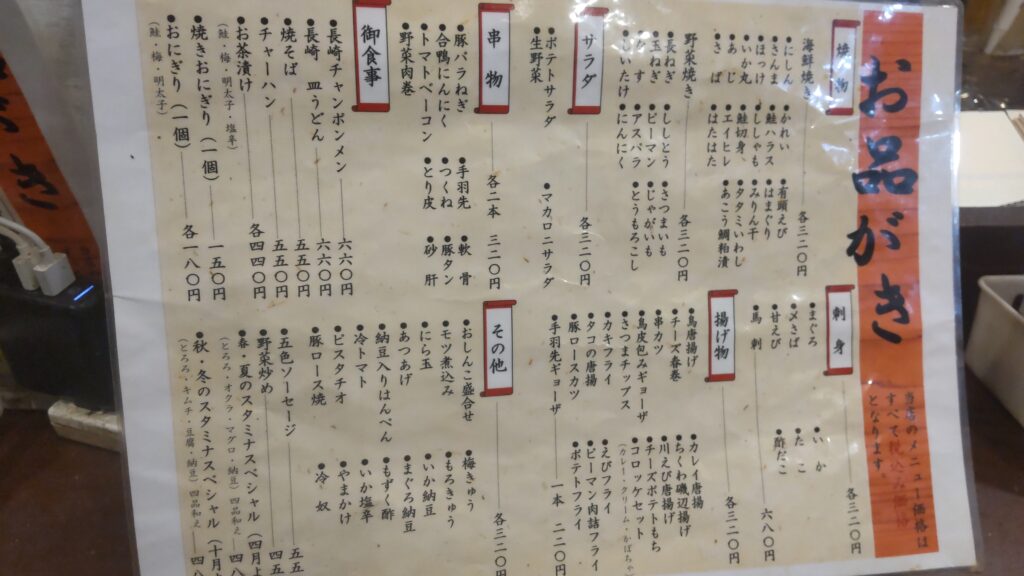 お品がき
当店のメニュー価格は
すべて税込み価格
となります。
焼物
海鮮焼き 各三二〇円
●にしん ●かれい ●有頭えび
●さんま ●鮭ハラス ●はまぐり
●ほっけ ●ししゃも ●みりん干
●いか丸 ●鮭切身 ●タタミいわし
●あじ ●エイヒレ ●あこう鯛粕漬
●さば ●はたはた
野菜焼き 各三二〇円
●長ねぎ ●ししとう ●さつまいも
●玉ねぎ ●ピーマン ●じゃがいも
●なす ●アスパラ ●とうもろこし
●しいたけ ●にんにく
サラダ 各三二〇円
●ポテトサラダ ●マカロニサラダ
●生野菜
串物 各二本 三二〇円
●豚バラねぎ ●手羽先 ●軟骨
●合鴨にんにく ●つくね ●豚タン
●トマトベーコン ●とり皮 ●砂肝
●野菜肉巻
御食事
●長崎チャンポンメン 六六〇円
●長崎 皿うどん 六六〇円
●焼そば 五五〇円
●チャーハン 五五〇円
●お茶漬け 各四四〇円
(鮭・梅・明太子・塩辛)
●焼きおにぎり(一個) 一五〇円
●おにぎり(一個) 各一八〇円
(鮭・梅・明太子)
刺身 各三二〇円
●まぐろ ●いか
●〆さば ●たこ
●甘えび ●酢だこ
●馬刺 六八〇円
揚げ物 各三二〇円
●鳥唐揚げ ●カレイ唐揚
●チーズ春巻 ●ちくわ磯辺揚げ
●串カツ ●川えび唐揚げ
●鳥皮包みギョーザ ●チーズポテトもち
●さつまチップス ●コロッケセット
(カレー・クリーム・かぼちゃ)
●カキフライ ●えびフライ
●タコの唐揚 ●ピーマン肉詰フライ
●豚ロースカツ ●ポテトフライ
●手羽先ギョーザ 一本 二二〇円
その他 各三二〇円
●おしんこ盛合せ ●梅きゅう
●モツ煮込み ●もろきゅう
●にら玉 ●いか納豆
●あつあげ ●まぐろ納豆
●納豆入りはんぺん ●もずく酢
●冷トマト ●いか塩辛
●ピスタチオ ●やまかけ
●豚ロース焼 ●冷奴
●五色ソーセージ 五五
●野菜炒め 四五
●春・夏のスタミナスペシャル(四月よ 四八
(とろろ・オクラ・マグロ・納豆)四品和え
●秋・冬のスタミナスペシャル(十月よ 四八
(とろろ・キムチ・豆腐・納豆)四品和え